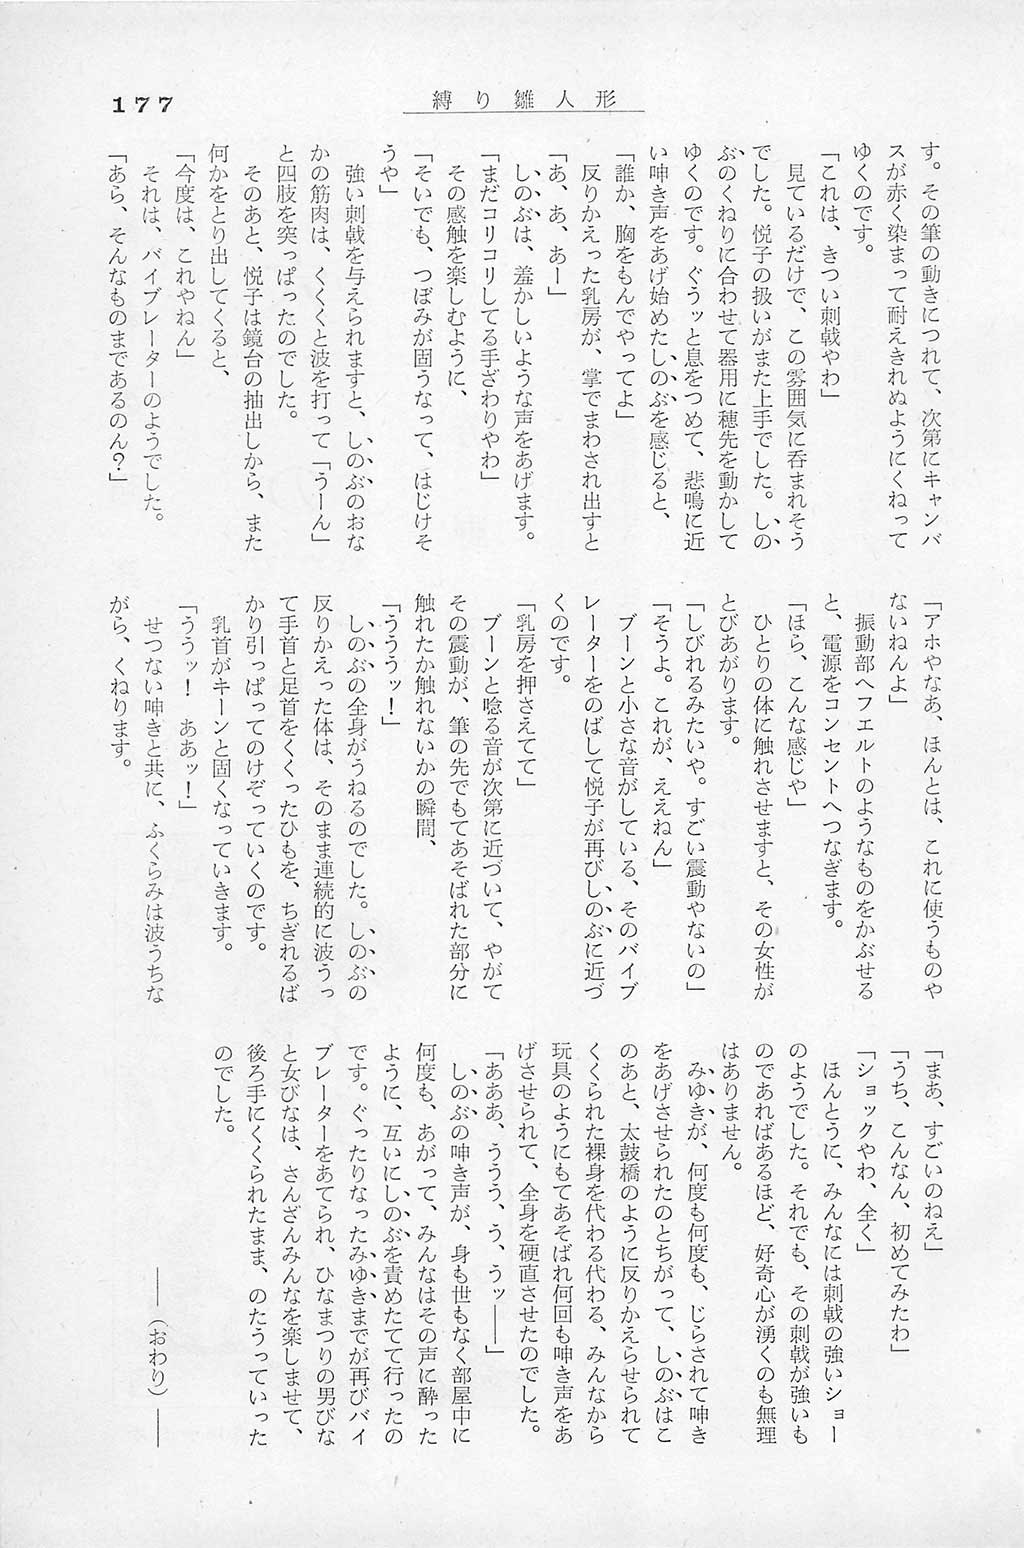 177
縛り雛人形
す。その筆の動きにつれて、次第にキャンバ
スが赤く染まって耐えきれぬようにくねって
ゆくのです。
「これは、きつい刺戟やわ」
見ているだけで、この雰囲気に呑まれそう
でした。悦子の扱いがまた上手でした。しの
ぶのくねりに合わせて器用に穂先を動かして
ゆくのです。ぐうッと息をつめて、悲鳴に近
い呻き声をあげ始めたしのぶを感じると、
「誰か、胸をもんでやってよ」
反りかえった乳房が、掌でまわされ出すと
「あ、あ、あー」
しのぶは、羞かしいような声をあげます。
「まだコリコリしてる手ざわりやわ」
その感触を楽しむように、
「そいでも、つぼみが固うなって、はじけそ
うや」
強い刺戟を与えられますと、しのぶのおな
かの筋肉は、くくくと波を打って「うーん」
と四肢を突っぱったのでした。
そのあと、悦子は鏡台の抽出しから、また
何かをとり出してくると、
「今度は、これやねん」
それは、バイブレーターのようでした。
「あら、そんなものまであるのん？」
「アホやなあ、ほんとは、これに使うものや
ないねんよ」
振動部へフエルトのようなものをかぶせる
と、電源をコンセントへつなぎます。
「ほら、こんな感じや」
ひとりの体に触れさせますと、その女性が
とびあがります。
「しびれるみたいや。すごい震動やないの」
「そうよ。これが、ええねん」
ブーンと小さな音がしている、そのバイブ
レーターをのばして悦子が再びしのぶに近づ
くのです。
「乳房を押さえてて」
ブーンと唸る音が次第に近づいて、やがて
その震動が、筆の先でもてあそばれた部分に
触れたか触れないかの瞬間、
「うううッ！」
しのぶの全身がうねるのでした。しのぶの
反りかえった体は、そのまま連続的に波うっ
て手首と足首をくくったひもを、ちぎれるば
かり引っぱってのけぞっていくのです。
乳首がキーンと固くなっていきます。
「ううッ！　ああッ！」
せつない呻きと共に、ふくらみは波うちな
がら、くねります。
「まあ、すごいのねえ」
「うち、こんなん、初めてみたわ」
「ショックやわ、全く」
ほんとうに、みんなには刺戟の強いショー
のようでした。それでも、その刺戟が強いも
のであればあるほど、好奇心が湧くのも無理
はありません。
みゆきが、何度も何度も、じらされて呻き
をあげさせられたのとちがって、しのぶはこ
のあと、太鼓橋のように反りかえらせられて
くくられた裸身を代わる代わる、みんなから
玩具のようにもてあそばれ何回も呻き声をあ
げさせられて、全身を硬直させたのでした。
「あああ、ううう、う、うッ――」
しのぶの呻き声が、身も世もなく部屋中に
何度も、あがって、みんなはその声に酔った
ように、互いにしのぶを責めたてて行ったの
です。ぐったりなったみゆきまでが再びバイ
ブレーターをあてられ、ひなまつりの男びな
と女びなは、さんざんみんなを楽しませて、
後ろ手にくくられたまま、のたうっていった
のでした。
――（おわり）――